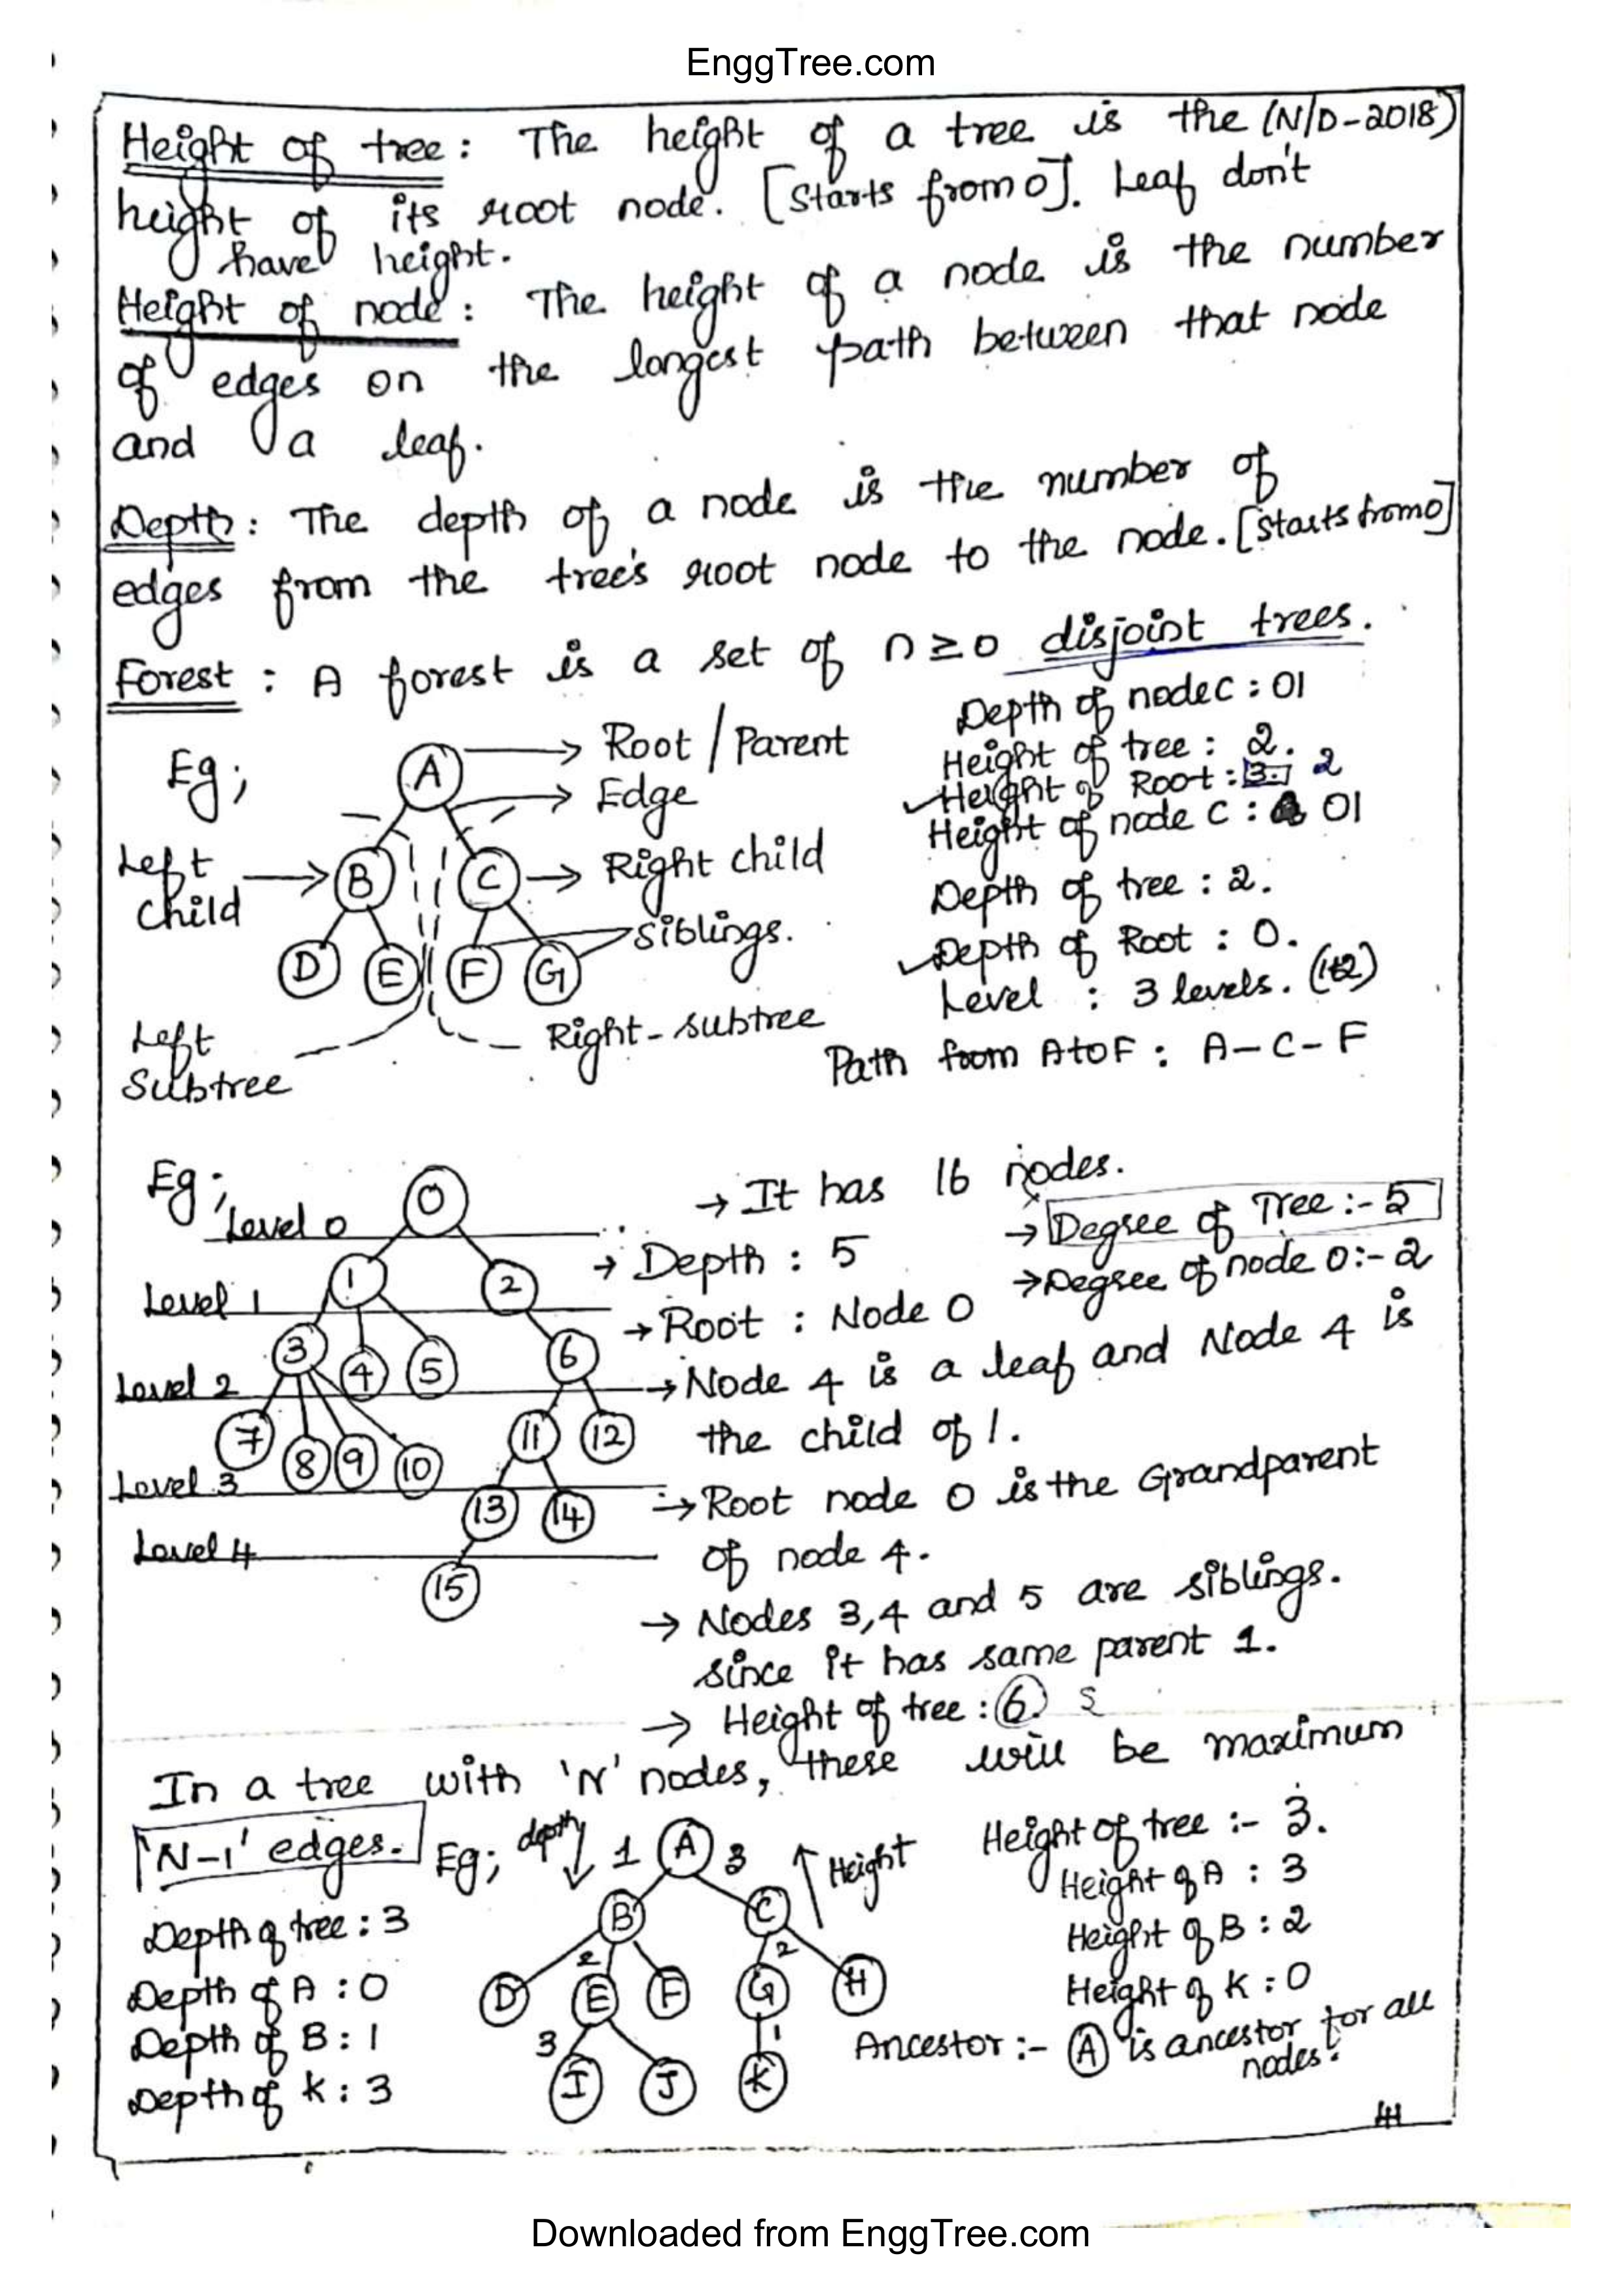 EnggTree.com
Height of tree : The height of a tree is the (N/D-2018)
height of its root node. [Starts from 0]. Leaf don't
have height.
Height of node : The height of a node is the number
of edges on the longest path between that node
and a leaf.
Depth : The depth of a node is the number of
edges from the tree's root node to the node. [Starts from 0]
Forest : A forest is a set of n ≥ 0 disjoint trees.
Eg;
A
Root / Parent
Edge
Left
Child
B
C
Right child
Siblings.
D E F G
Left
Subtree
Right-subtree
Depth of node C : 01
Height of tree : 2.
Height of Root : 3. 2
Height of node C : 01
Depth of tree : 2.
Depth of Root : 0.
Level : 3 levels. (1+2)
Path from A to F : A-C-F
Eg;
Level 0
0
Level 1
1 2
Level 2
3 4 5 6
Level 3
7 8 9 10 11 12
Level 4
13 14
15
→ It has 16 nodes.
→ Degree of Tree :- 5
→ Depth : 5
→ Degree of node 0 :- 2
→ Root : Node 0
→ Node 4 is a leaf and Node 4 is
the child of 1.
→ Root node 0 is the Grandparent
of node 4.
→ Nodes 3,4 and 5 are siblings.
since it has same parent 1.
→ Height of tree : 6. 5
In a tree with 'N' nodes, these will be maximum
'N-1' edges.
Eg; depth
1 A 3
Height
B C
2 2
D E F G H
3 1
I J K
Depth of tree : 3
Depth of A : 0
Depth of B : 1
Depth of K : 3
Height of tree :- 3.
Height of A : 3
Height of B : 2
Height of K : 0
Ancestor :- A is ancestor for all
nodes.
Downloaded from EnggTree.com